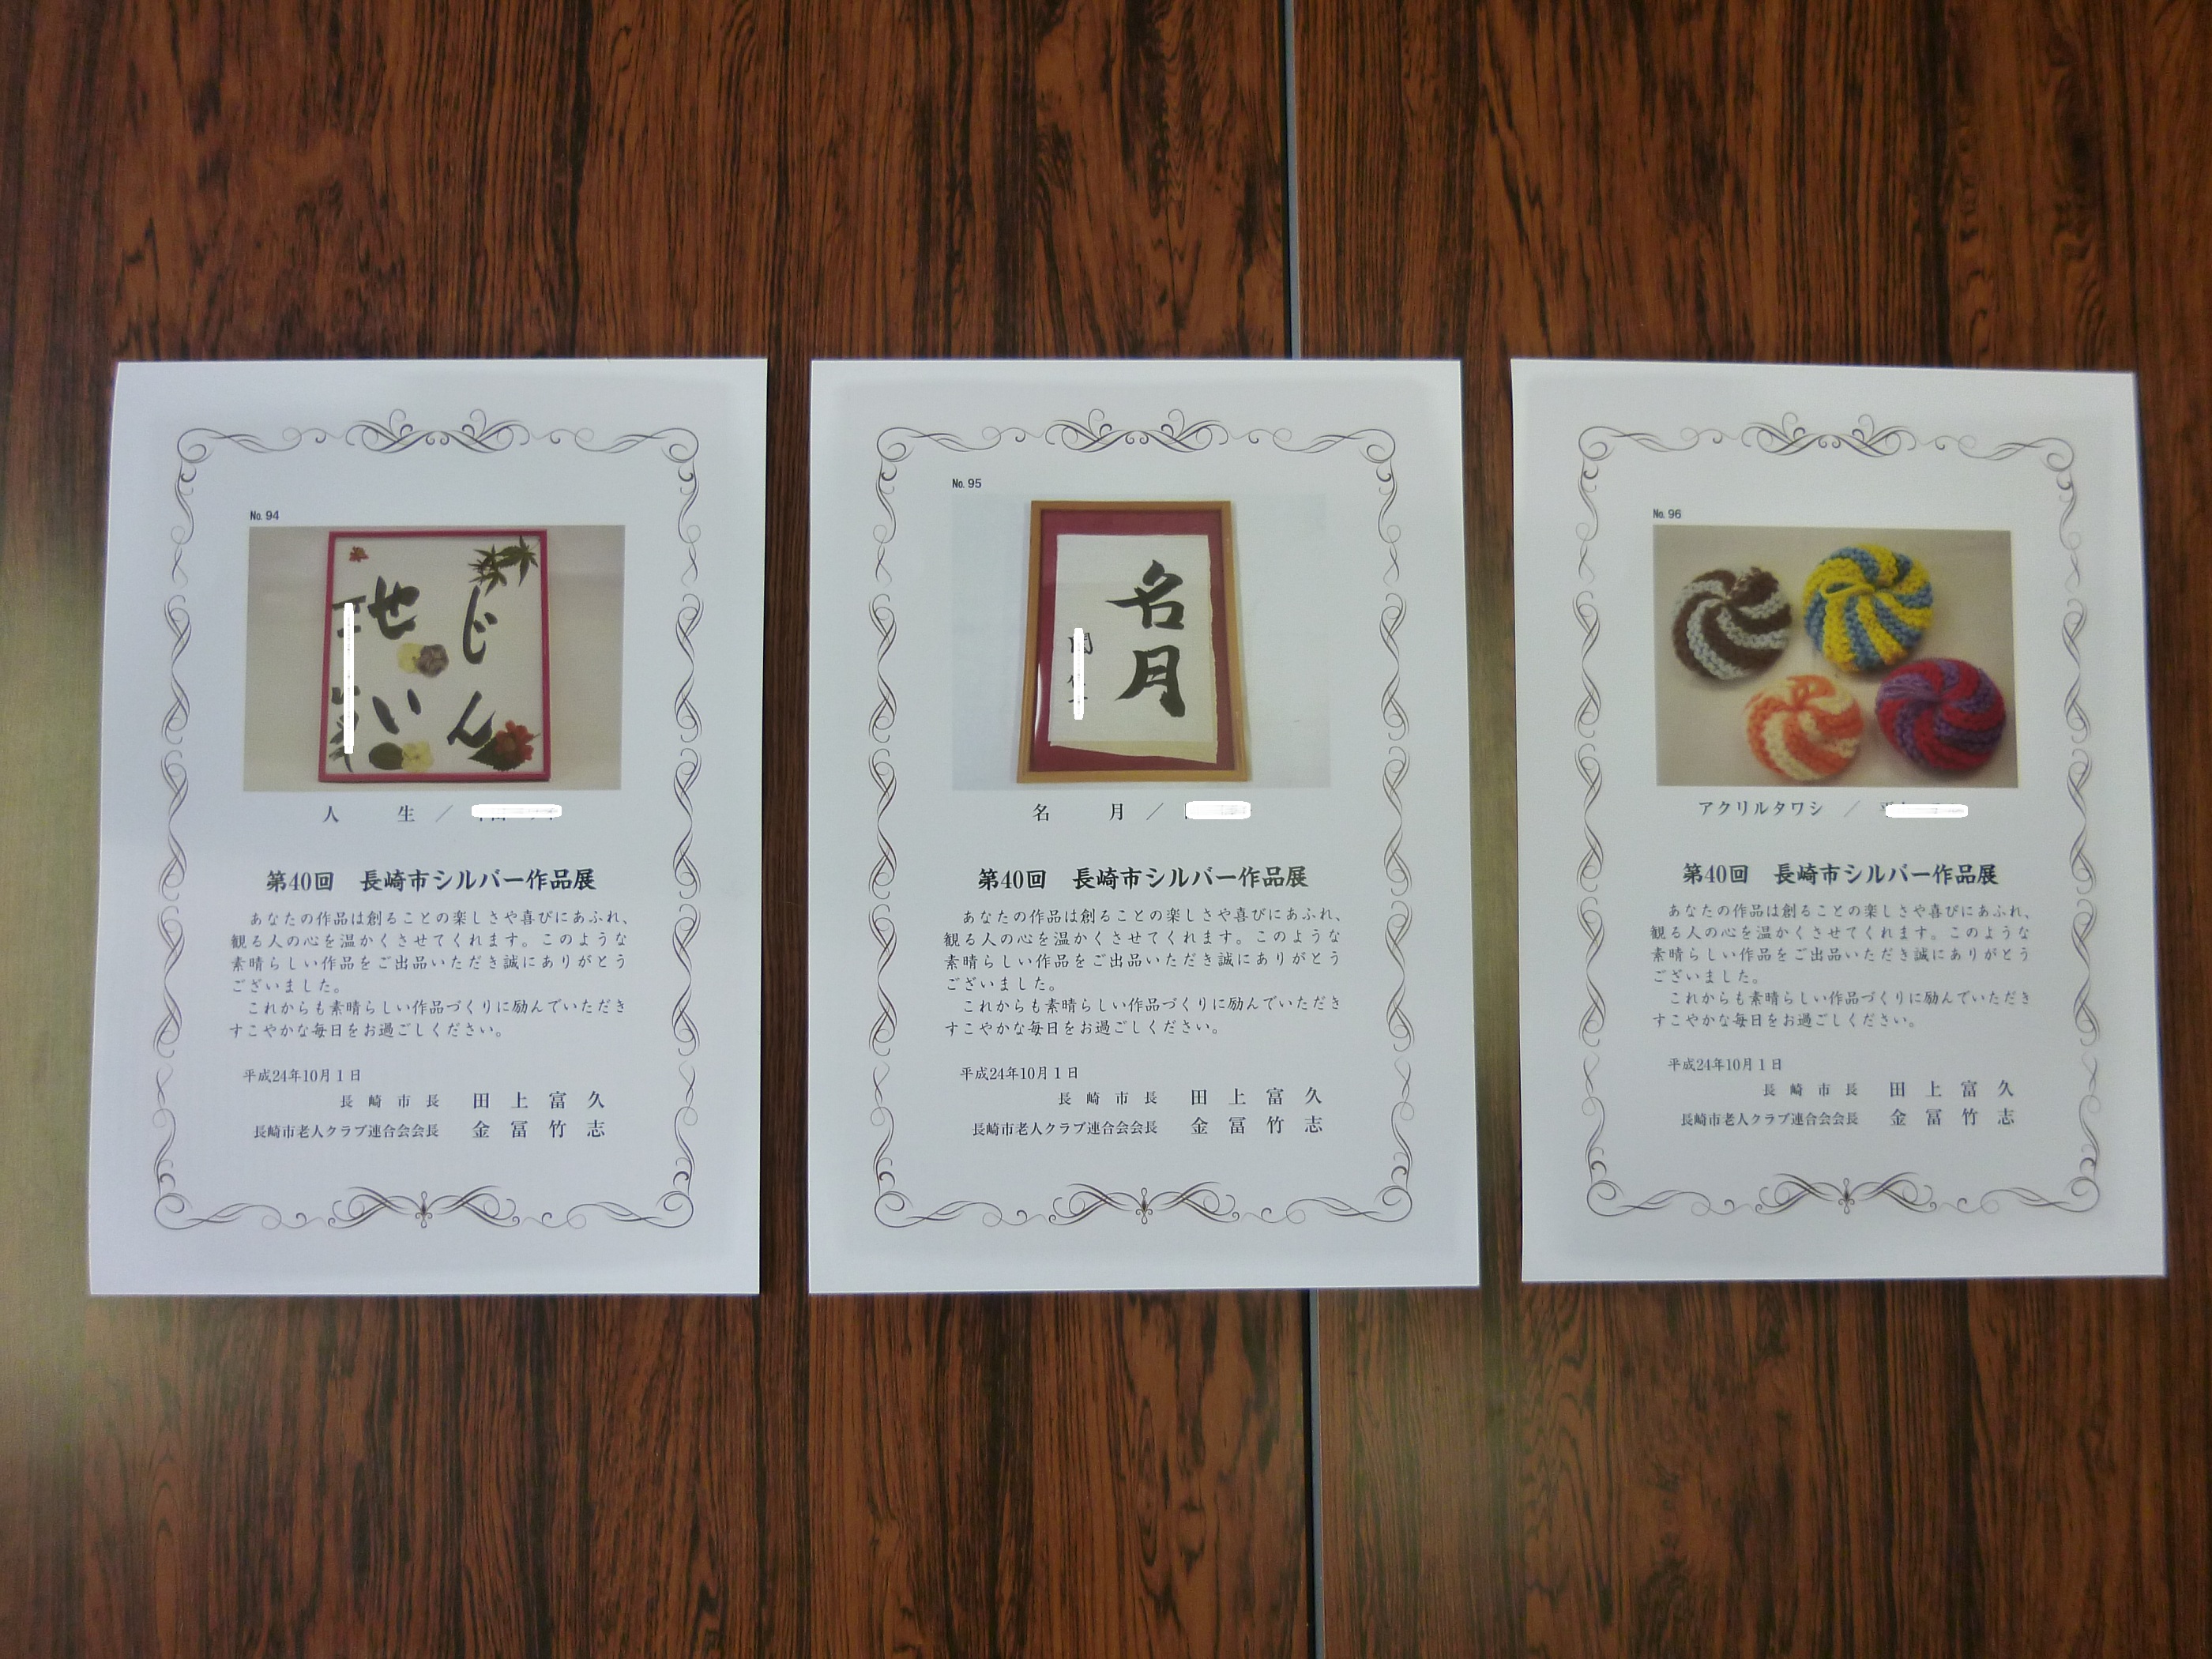 No. 94
じん
せい
人 生 ／
第40回 長崎市シルバー作品展
あなたの作品は創ることの楽しさや喜びにあふれ、
観る人の心を温かくさせてくれます。このような
素晴らしい作品をご出品いただき誠にありがとう
ございました。
これからも素晴らしい作品づくりに励んでいただき
すこやかな毎日をお過ごしください。
平成24年10月1日
長崎市長 田上富久
長崎市老人クラブ連合会会長 金冨竹志
No. 95
名月
名 月 ／
第40回 長崎市シルバー作品展
あなたの作品は創ることの楽しさや喜びにあふれ、
観る人の心を温かくさせてくれます。このような
素晴らしい作品をご出品いただき誠にありがとう
ございました。
これからも素晴らしい作品づくりに励んでいただき
すこやかな毎日をお過ごしください。
平成24年10月1日
長崎市長 田上富久
長崎市老人クラブ連合会会長 金冨竹志
No. 96
アクリルタワシ ／
第40回 長崎市シルバー作品展
あなたの作品は創ることの楽しさや喜びにあふれ、
観る人の心を温かくさせてくれます。このような
素晴らしい作品をご出品いただき誠にありがとう
ございました。
これからも素晴らしい作品づくりに励んでいただき
すこやかな毎日をお過ごしください。
平成24年10月1日
長崎市長 田上富久
長崎市老人クラブ連合会会長 金冨竹志